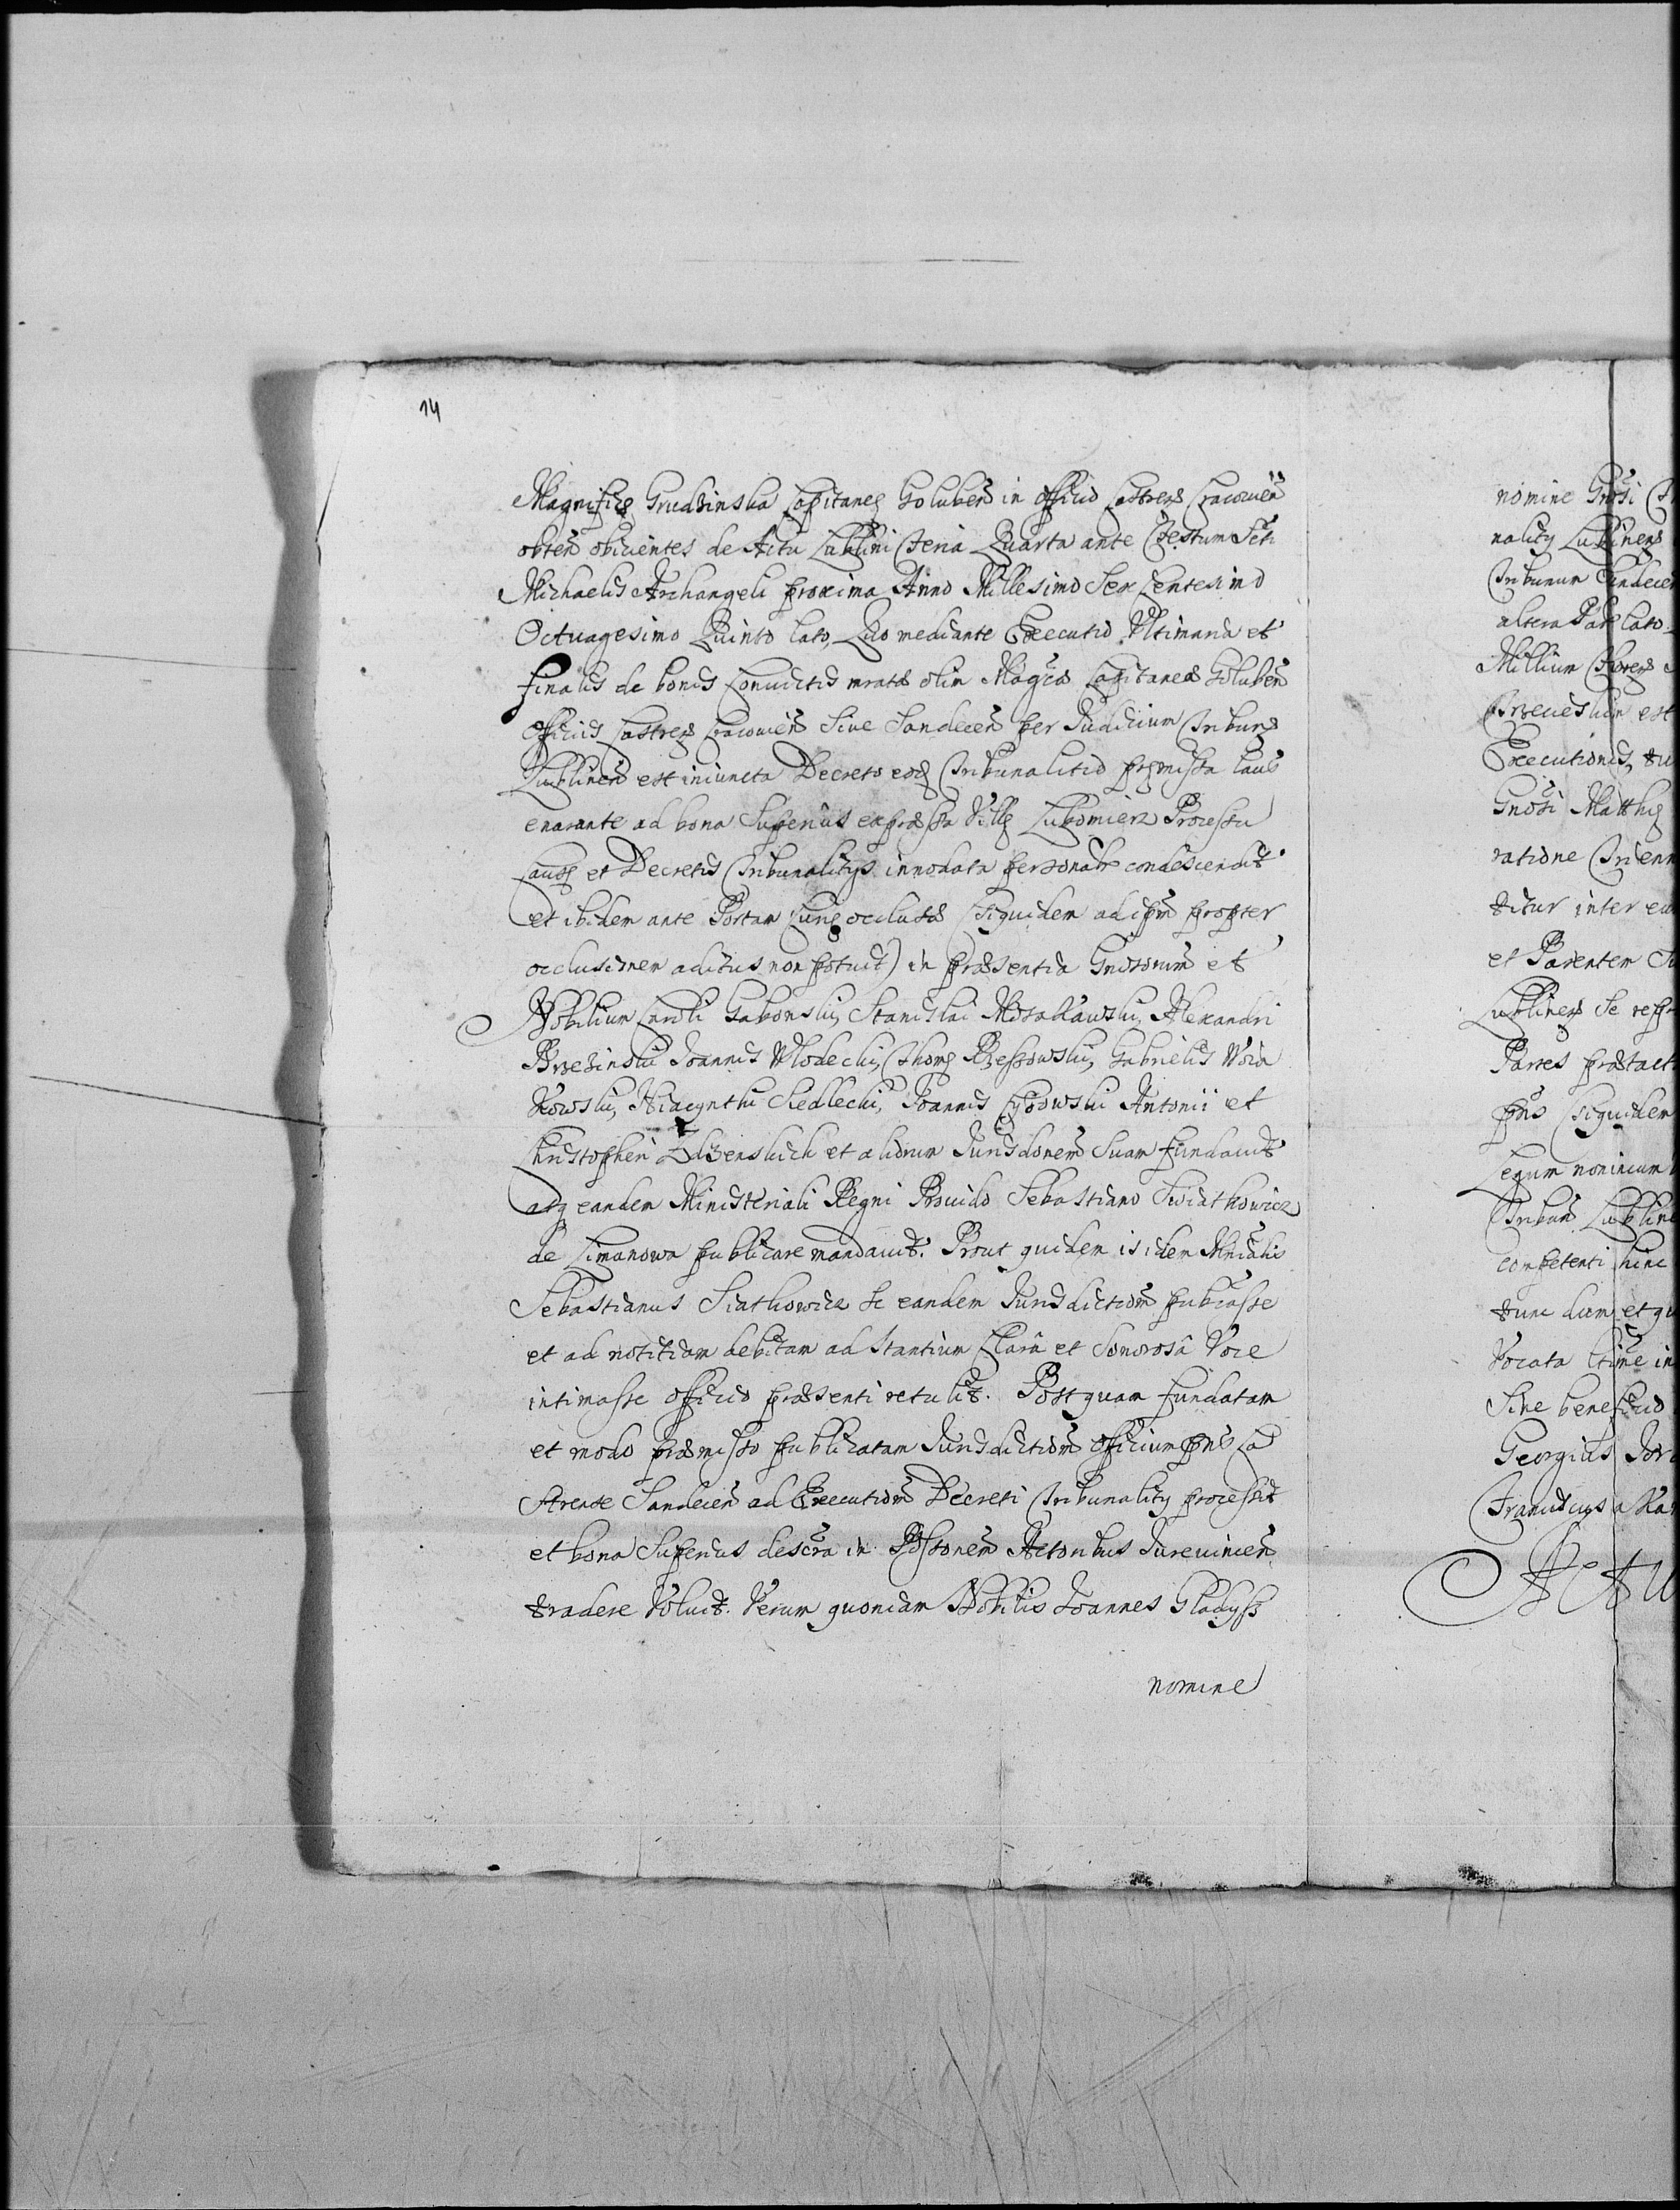 14
Magnificę Grudzinska Capitaneę Golubeñ in Officio Castreñ Cracovieñ
obteñ obijcientes de Actu Lublini Feria Quarta ante Festum Scti
Michaelis Archangeli proxima Anno Millesimo Sex Centesimo
Octuagesimo Quinto lato, Quo mediante Executio Ultimaria et
finalis de bonis Convictis mratæ olim Magcæ Capitaneæ Golubeñ
Officio Castreñ Cracovieñ Sive Sandeceñ per Judicium Tribunę
Lublineñ est iniuncta Decreto eoq Tribunalitio pręmissa laus
enarante ad bona Superiûs expræssa Villę Lubomierz Processu
Causę et Decretis Tribunalitys innodata personatr condescendit
et ibidem ante Portam Curię occlusæ (siquidem ad ipm propter
occlusionem aditus non potuit) in præsentia Gnrosorum et
Nobilium Caroli Gabonski, Stanislai Mosakowski, Alexandri
Brzezinski Joannis Wlodecki, Thomę Rzeszowski, Gabrielis Woia
Kowski, Hiacynthi Siedlecki, Joannis Cyrowski Antonii et
Christopheri Zdzenskich et aliorum Jurisdonem Suam fundavit
atq eandem Ministeriali Regni Provido Sebastiano Swiathowicz
de Limanowa publicare mandavit. Prout quidem is idem Mnialis
Sebastianus Siathowicz se eandem Jurisdictiom publcasse
et ad notitiam debitam ad Stantium Clarâ et Sonorosâ Voce
intimasse officio præsenti retulit. Post quam fundatam
et modo præmisso publicatam Jurisdictiom Officium pñs Ca
strense Sandeceñ ad Executiom Decreti Tribunality processit
et bona Superius descra in Possionem Actoribus Jurevinceñ
tradere Voluit. Verum quoniam Nobilis Joannes Gladysz
nomine
nomine Gnosi
nality Lublineñ
Tribunum
altera Parte lato
Millium
est
Executionis,
Gnosi Matthię
ratione
titur inter
et Parentem
Lublineñ se
Partes
pñs (siquidem
Legum
Tribuñ
competenti hinc
tunc dum et
Vocata
Sine beneficio
Georgius
Franciscus a